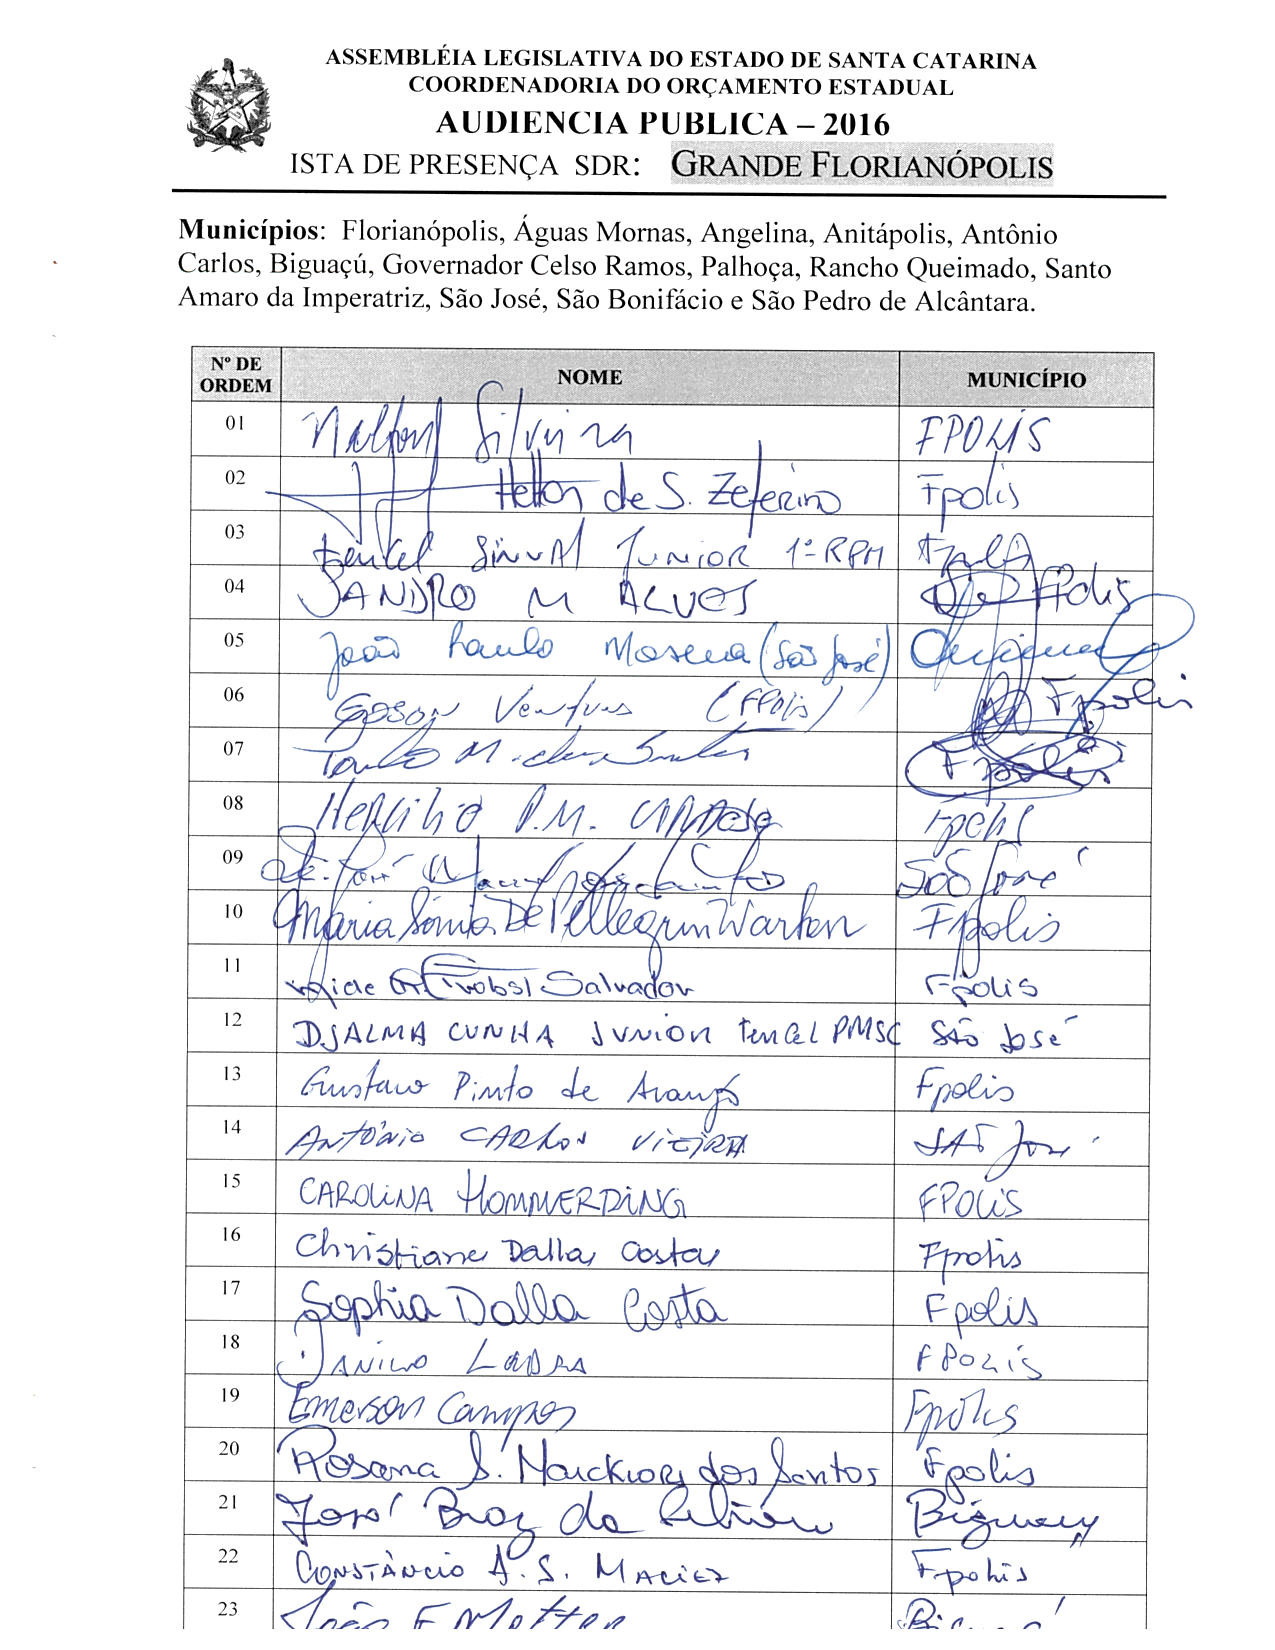 ASSEMBLÉIA LEGISLATIVA DO ESTADO DE SANTA CATARINA
COORDENADORIA DO ORÇAMENTO ESTADUAL
AUDIENCIA PUBLICA – 2016
ISTA DE PRESENÇA SDR: GRANDE FLORIANÓPOLIS
Municípios: Florianópolis, Águas Mornas, Angelina, Anitápolis, Antônio
Carlos, Biguaçú, Governador Celso Ramos, Palhoça, Rancho Queimado, Santo
Amaro da Imperatriz, São José, São Bonifácio e São Pedro de Alcântara.
Nº DE ORDEM NOME MUNICÍPIO
01 Silveira FPOLIS
02 de S. Zeferino Fpolis
03 Tencel SINVAL JUNIOR 1ª RPM
04 SANDRO M ALVES Fpolis
05 João Paulo (São José)
06 (FPolis) Fpolis
07 Paulo Fpolis
08 Hercilio P.M.
09 São José
10 Maria Sônia De Pellegrin Warken Fpolis
11 Probst Salvador Fpolis
12 DJALMA CUNHA JUNIOR Tencel PMSC São José
13 Gustavo Pinto de Araujo Fpolis
14 ANTÔNIO CARLOS VIEIRA SÃO José
15 CAROLINA HOMMERDING FPOLIS
16 Christiane Dalla Costa Fpolis
17 Sophia Dalla Costa Fpolis
18 DANILO FPOLIS
19 Emerson Campos Fpolis
20 Rosana S. dos Santos Fpolis
21 José Braz da Biguaçu
22 CONSTÂNCIO A. S. MACIEL Fpolis
23 João